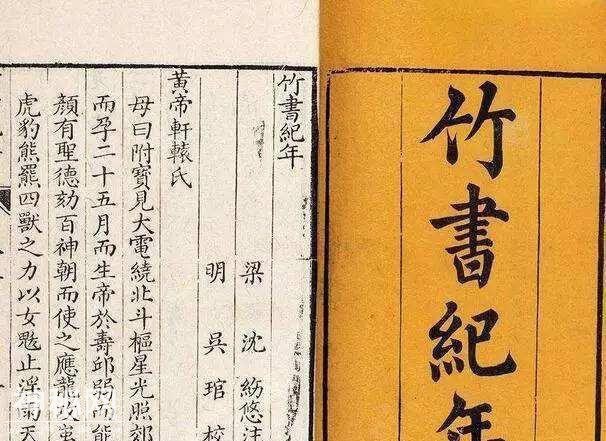 竹書紀年
竹書紀年
梁 沈
明 吳琯校
黃帝軒轅氏
母曰附寶見大電繞北斗樞星光照郊
而孕二十五月而生帝於壽邱弱而能
顏有聖德劾百神朝而使之應龍攻蚩
虎豹熊羆四獸之力以女魃止淫雨天